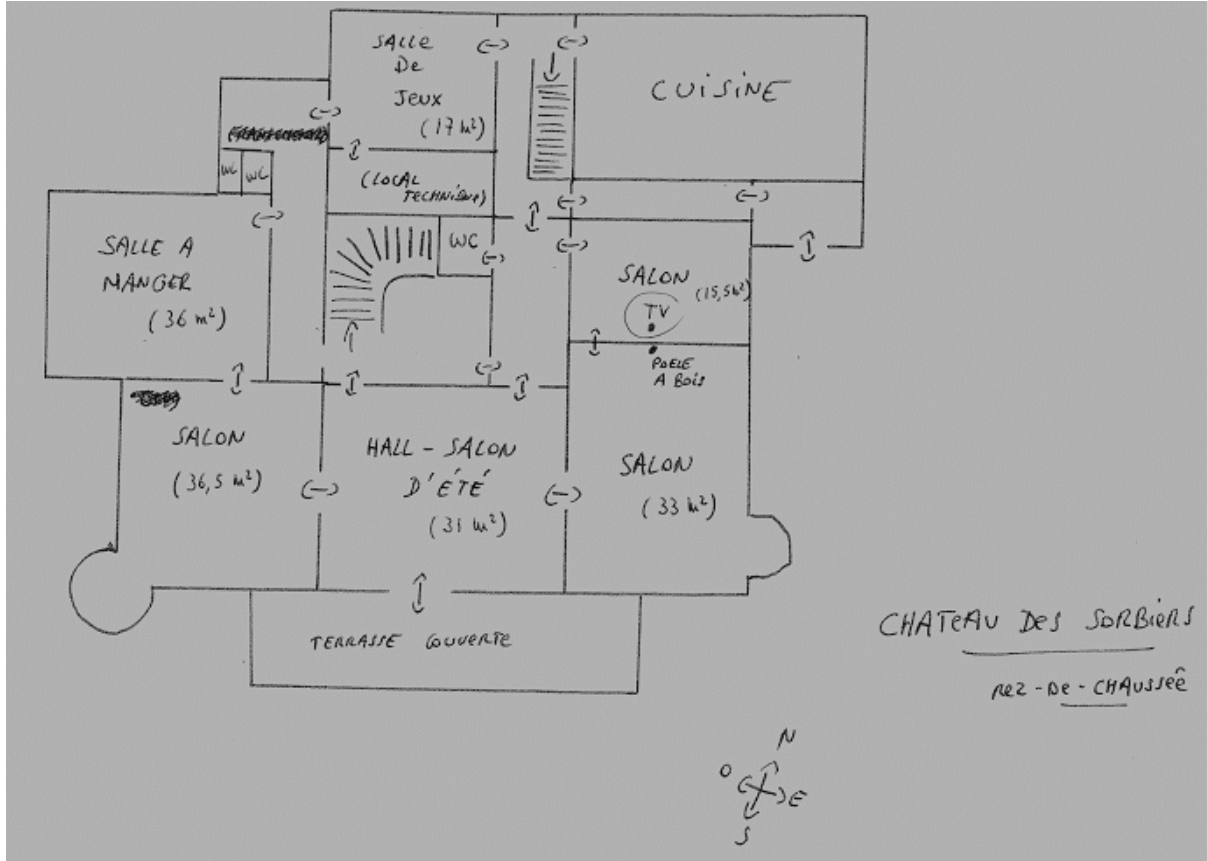 SALLE
De
Jeux
(17 m²)
CUISINE
WC
WC
(LOCAL
TECHNIQUE)
WC
SALLE A
MANGER
(36 m²)
SALON
(15,5 m²)
TV
POELE
A BOIS
SALON
(36,5 m²)
HALL - SALON
D'ÉTÉ
(31 m²)
SALON
(33 m²)
TERRASSE COUVERTE
CHATEAU Des SORBiers
rez-De-CHAussée
N
O
E
S